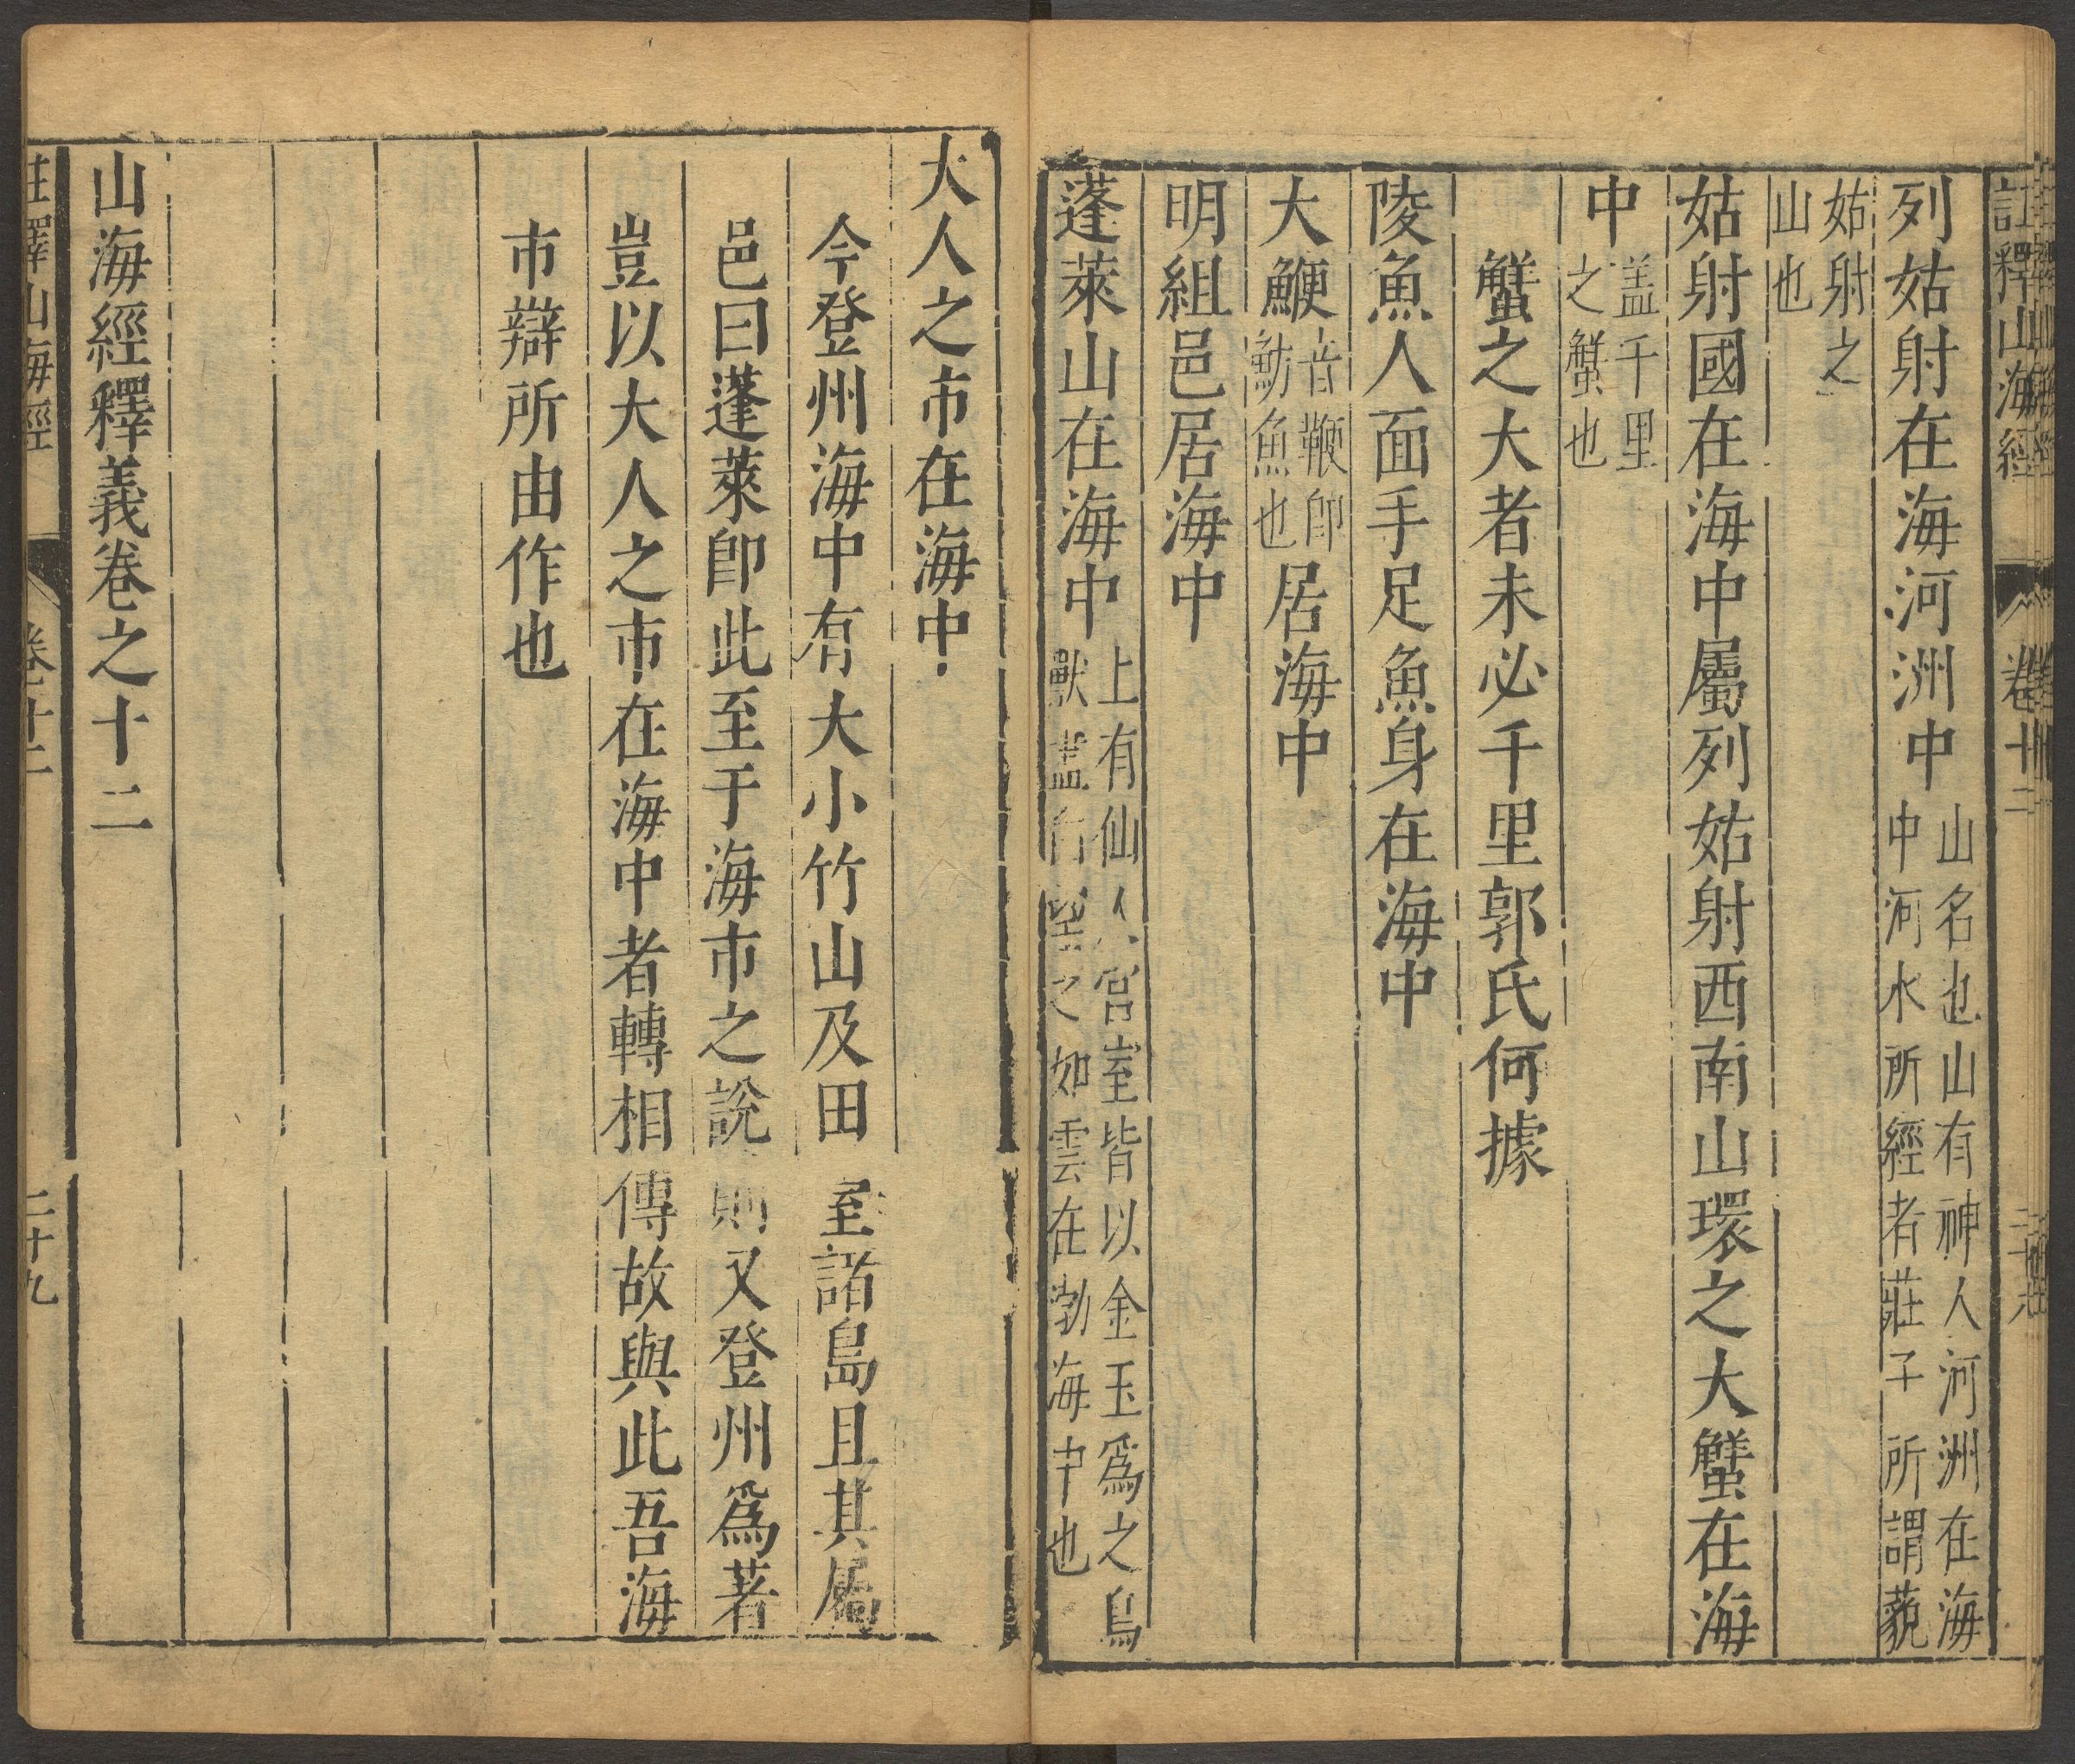 列姑射在海河洲中山名也山有神人河洲在海中河水所經者莊子所謂藐
姑射之山也
姑射國在海中屬列姑射西南山環之大蟹在海
中盖千里之蟹也
蟹之大者未必千里郭氏何據
陵魚人面手足魚身在海中
大鯾音鞭卽魴魚也居海中
明組邑居海中
蓬萊山在海中上有仙人宮室皆以金玉爲之鳥獸盡白望之如雲在渤海中也
大人之市在海中
今登州海中有大小竹山及田至諸島且其屬
邑曰蓬萊卽此至于海市之說則又登州爲著
豈以大人之市在海中者轉相傳故與此吾海
市辯所由作也
山海經釋義卷之十二
註釋山海經 卷十二 二十九